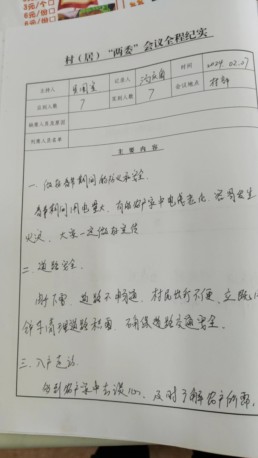 3元/个口
6元/组口
6元/组口
村（居）“两委”会议全程纪实
主持人 记录人 时间 2024 02.27
应到人数 7 实到人数 7 会议地点 村部
缺席人员及原因
列席人员名单
主要内容
一、做好春节期间的防火安全。
春节期间用电量大，有的农户家中电线老化，容易发生
火灾，大家一定做好宣传
二、道路安全。
刚下雪，道路不畅通，村民出行不便，立即
铲车清理道路积雪，确保道路交通安全。
三、入户走访
到农户家中去谈心，及时了解农户所需，